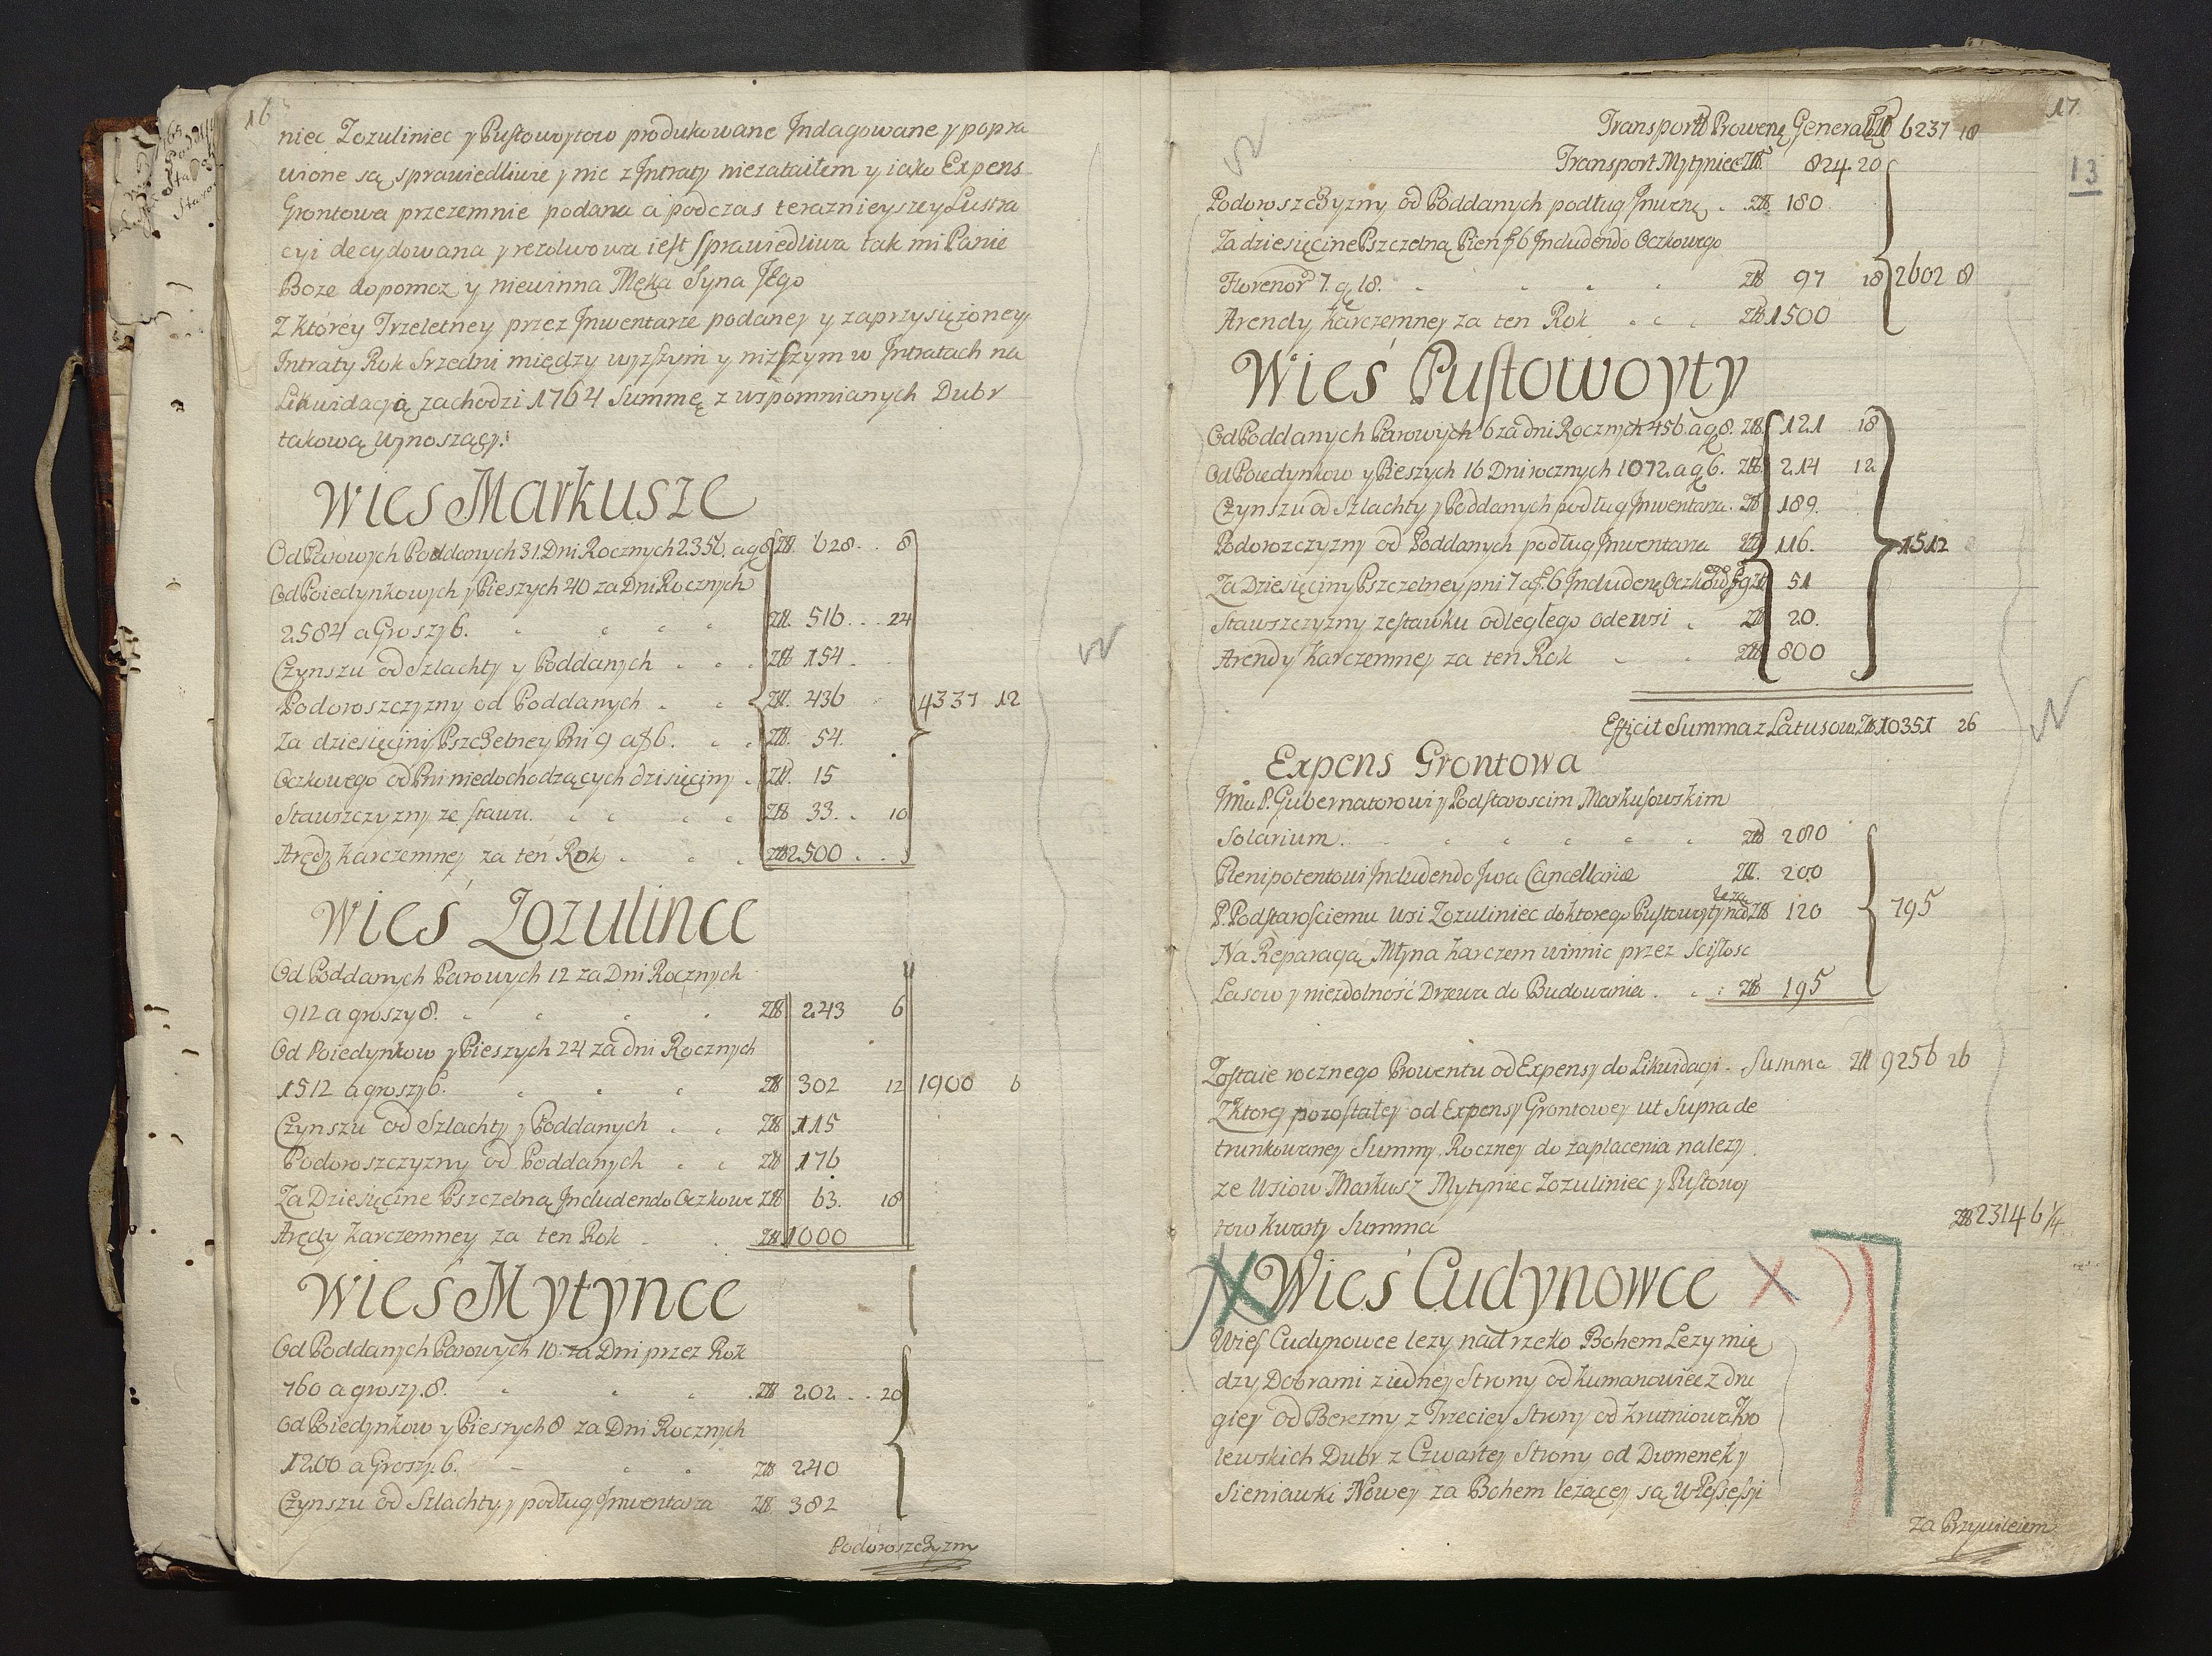 16
niec Zozuliniec y Pustowoytow produkowane Indagowane y popra
wione są sprawiedliwie y nic z Intraty niezataiłem y iako Expens
Grontowa przezemnie podana a podczas teraznieyszey Lustra
cyi decydowana y rezolwowa iest sprawiedliwa tak mi Panie
Boze dopomoz y niewinna Męka Syna Jego
Z ktorey Trzeletney przez Inwentarze podaney y zaprzysiężoney
Intraty Rok Srzedni między wyzszym y nizszym w Intratach na
Likwidacyą zachodzi 1764 Summę z wspomnianych Dubr
takową wynoszący.
Wies Markusze
Od Parowych Poddanych 31. Dni Rocznych 2356. a g 8 Zll. 628. 8
Od Poiedynkowych y Pieszych 40 za Dni Rocznych
2584 a Groszy 6. Zll. 516. 24
Czynszu od Szlachty y Poddanych Zll 154.
Podoroszczyzny od Poddanych Zll. 436 4337 12
Za dziesięciny Pszczelney Pni 9 a f 6. Zll. 54.
Oczkowego od Pni niedochodzących dzisięciny Zll. 15
Stawszczyzny ze stawu. Zll 33. 10
Arędy Karczemney za ten Rok Zll 2500
Wieś Zozulince
Od Poddanych Parowych 12 za Dni Rocznych
912 a groszy 8. Zll 243 6
Od Poiedynkow y Pieszych 24 za dni Rocznych
1512 a groszy 6. Zll 302 12 1900 6
Czynszu od Szlachty y Poddanych Zll 115
Podoroszczyzny od Poddanych Zll 176
Za Dziesięcine Pszczelną Includendo Oczkowe Zll 63. 18
Arędy Karczemney za ten Rok Zll 1000
Wieś Mytynce
Od Poddanych Parowych 10. za Dni przez Rok
760 a groszy. 8. Zll 202 20
Od Poiedynkow y Pieszych 8 za Dni Rocznych
1200 a Groszy. 6. Zll 240
Czynszu od Szlachty, y podług Inwentarza Zll. 382
Podoroszczyzny
17.
13
Transport Prowenę General Zll 6237 18
Transport Mytyniec Zll. 824. 20
Podoroszczyzny od Poddanych podług Inwenę. Zll 180
Za dziesięcine Pszczelną Pien f 6 Includendo Oczkowego
Florenor 7. g 18. Zll 97 18 2602 8
Arendy Karczemney za ten Rok Zll 1500
Wieś Pustowoyty
Od Poddanych Parowych 6 za dni Rocznych 456. a g 8. Zll 121 18
Od Poiedynkow y Pieszych 16 Dni rocznych 1072. a g 6. Zll 214 12
Czynszu od Szlachty y Poddanych podług Inwentarza. Zll 189.
Podorozczyzny od Poddanych podług Inwentarza Zll 116. 1512
Za Dziesięciny Pszczelney pni 7 a f. 6 Includenę Oczkowe Zll 51
Stawszczyzny zestawku odległego odewsi Zll 20.
Arendy Karczemney za ten Rok Zll 800
Efficit Summa z Latusow Zll 10351 26
Expens Grontowa
Imu P. Gubernatorowi y Podstaroscim Markusowskim
Solarium. Zll 280
Plenipotentowi Includendo Jura Cancellariæ Zll. 200
P. Podstarosciemu wsi Zozuliniec do ktorego Pustowoyty należą Zll 120 795
Na Reparacyą Młyna Karczem winnic przez Scisłosc
Lasow y niezdolność Drzewa do Budowania. Zll 195
Zostaie rocznego Prowentu od Expensy do Likwidacyi. Summa Zll 9256 26
Z ktorey pozostałey od Expensy Grontowey ut Supra de
trunkowaney Summy Roczney do zapłacenia nalezy
ze Wsiow Markusz Mytyniec Zozuliniec y Pustowoy
tow Kwarty Summa Zll 2314 6 1/4
Wieś Cudynowce
Wies Cudynowce lezy nad rzeko Bohem Lezy mię
dzy Dobrami z iedney Strony od Kumanowiec z dru
giey od Berezny z Trzeciey Strony od Kro
lewskich Dubr z Czwartey Strony od Dumenek y
Sieniawki Nowey za Bohem leżącey są w Possessyi
za Przywileiem